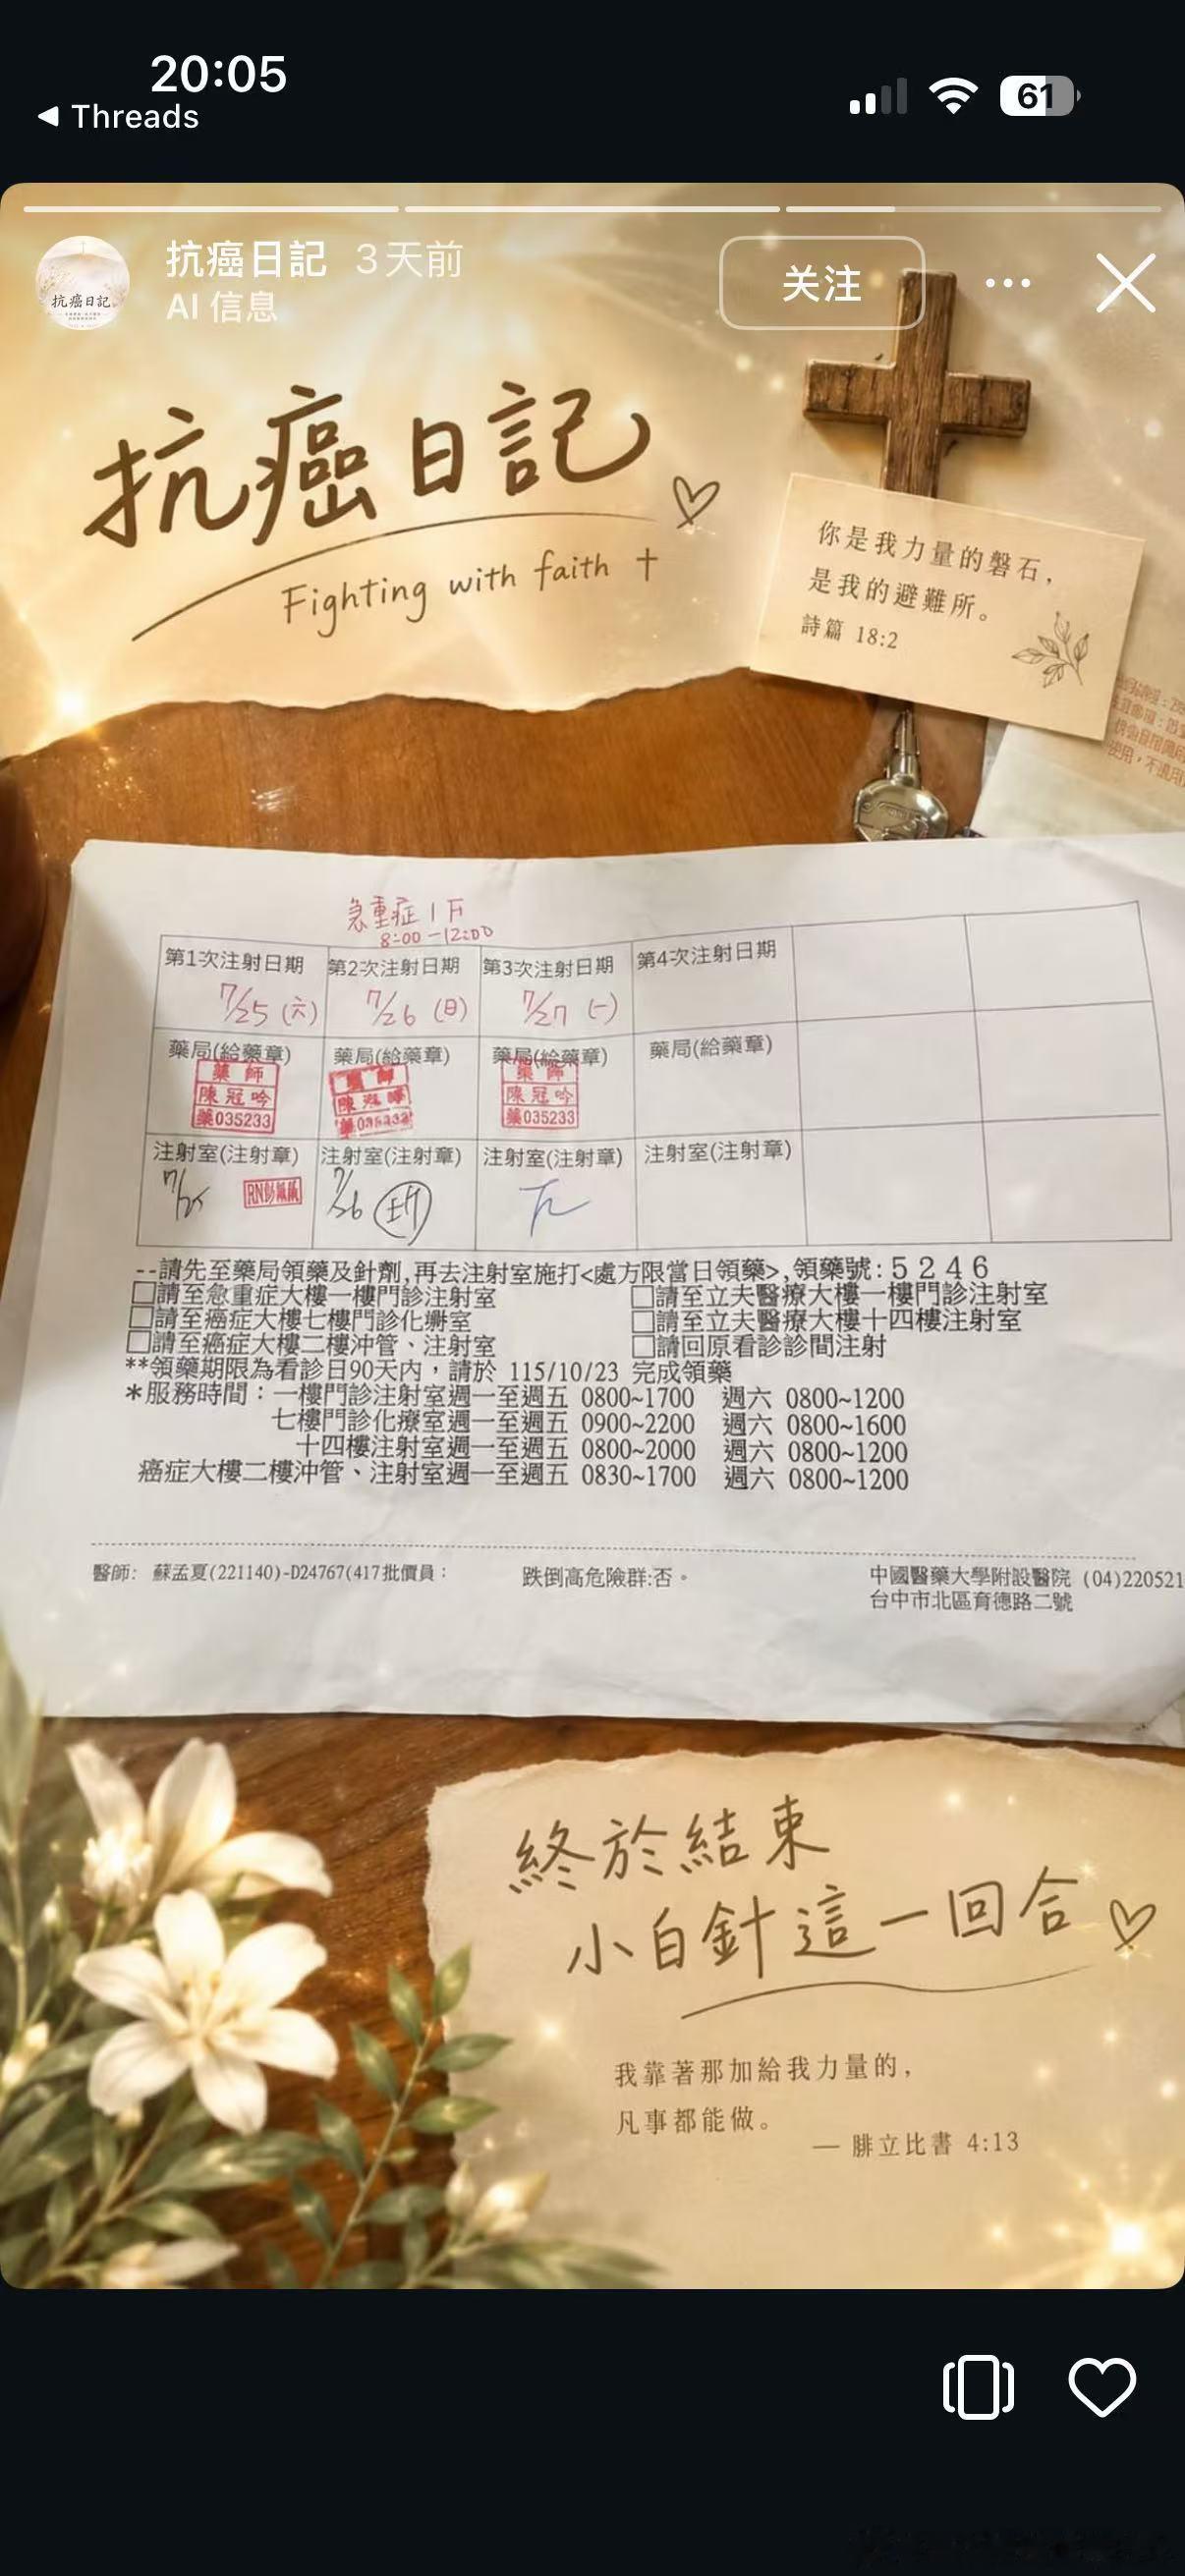 20:05
Threads
61
抗癌日記 3天前
AI 信息
关注
抗癌日記
抗癌日記
Fighting with faith
你是我力量的磐石，
是我的避難所。
詩篇 18:2
急重症 1F
8:00-12:00
第1次注射日期 第2次注射日期 第3次注射日期 第4次注射日期
7/25 (六) 7/26 (日) 7/27 (一)
藥局(給藥章) 藥局(給藥章) 藥局(給藥章) 藥局(給藥章)
藥師 藥師 藥師
陳冠吟 陳冠吟
藥035233 藥035233
注射室(注射章) 注射室(注射章) 注射室(注射章) 注射室(注射章)
7/25 7/26
--請先至藥局領藥及針劑,再去注射室施打<處方限當日領藥>,領藥號:5246
□請至急重症大樓一樓門診注射室 □請至立夫醫療大樓一樓門診注射室
□請至癌症大樓七樓門診化療室 □請至立夫醫療大樓十四樓注射室
□請至癌症大樓二樓沖管、注射室 □請回原看診診間注射
**領藥期限為看診日90天內，請於 115/10/23 完成領藥
*服務時間：一樓門診注射室週一至週五 0800~1700 週六 0800~1200
七樓門診化療室週一至週五 0900~2200 週六 0800~1600
十四樓注射室週一至週五 0800~2000 週六 0800~1200
癌症大樓二樓沖管、注射室週一至週五 0830~1700 週六 0800~1200
醫師: 蘇孟夏(221140)-D24767(417批價員： 跌倒高危險群:否。 中國醫藥大學附設醫院 (04)220521
台中市北區育德路二號
終於結束
小白針這一回合
我靠著那加給我力量的，
凡事都能做。
— 腓立比書 4:13